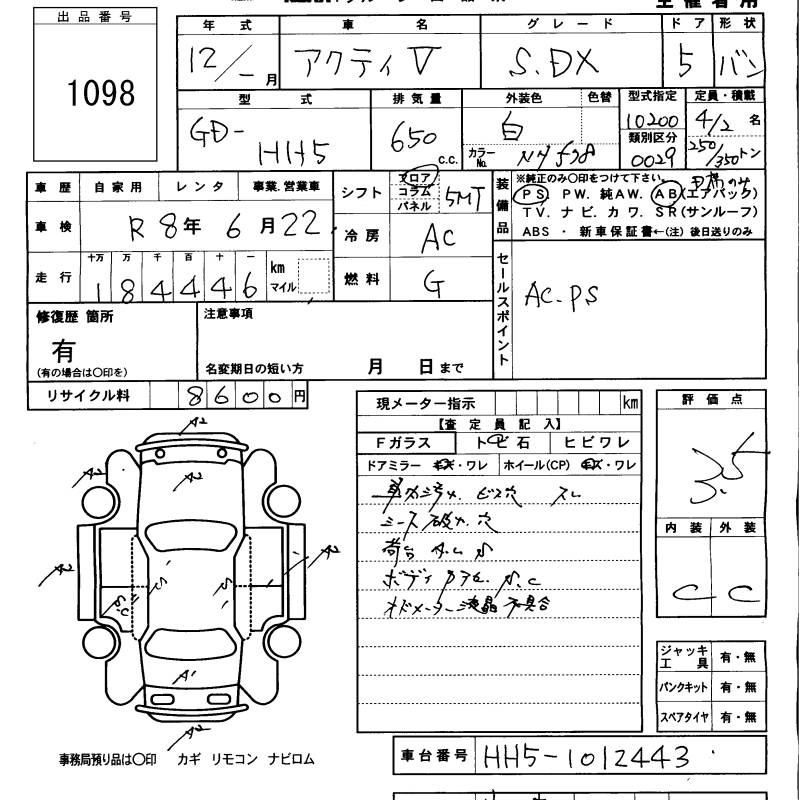 主催者用
出品番号
1098
年式 車名 グレード ドア 形状
12/-月 アクティV S.DX 5 バン
型式 排気量 外装色 色替 型式指定 定員・積載
GD-HH5 650 c.c. 白 カラーNo. NH 578 10200 4/2名
類別区分 0029 250/350トン
車歴 自家用 レンタ 事業.営業車 シフト フロア コラム パネル 5MT
車検 R8年6月22 冷房 AC
走行 十万 万 千 百 十 一 km マイル 燃料 G
184446
装備品
※純正のみ○印をつけて下さい。
PS. PW. 純AW. AB(エアバック)
TV. ナビ. カワ. SR(サンルーフ)
ABS・新車保証書←(注)後日送りのみ
セールスポイント
AC.PS
修復歴 箇所 注意事項
有
(有の場合は○印を) 名変期日の短い方 月 日まで
リサイクル料 8600円
現メーター指示 km
【査定員記入】
Fガラス トビ石 ヒビワレ
ドアミラー キズ・ワレ ホイール(CP) キズ・ワレ
ビス穴 スレ
シート 破れ 穴
荷台
ボディ
オドメーター液晶不具合
評価点
3.5
内装 外装
C C
A2
A2
A2
A2
A2
S.C
A1
A2
ジャッキ工具 有・無
パンクキット 有・無
スペアタイヤ 有・無
事務局預り品は○印 カギ リモコン ナビロム
車台番号 HH5-1012443